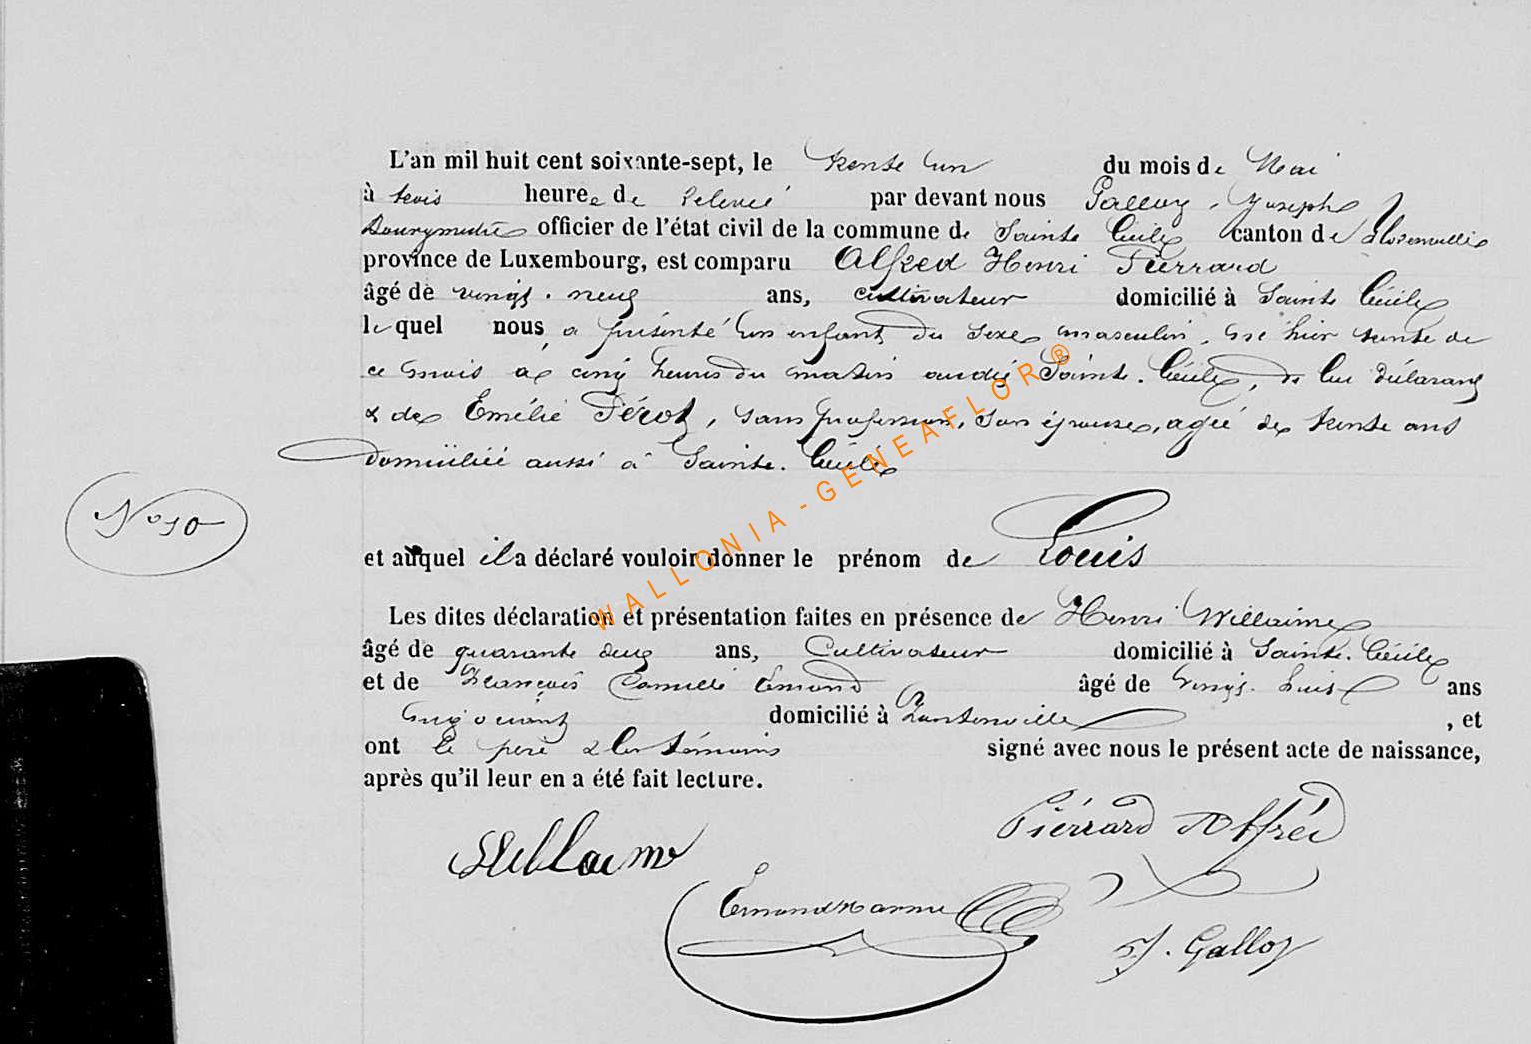 L'an mil huit cent soixante-sept, le trente un du mois de Mai
à trois heure de relevée par devant nous Galloy, Joseph
Bourgmestre officier de l'état civil de la commune de Sainte Cécile canton de Florenville
province de Luxembourg, est comparu Alfred Henri Pierrard
âgé de vingt-neuf ans, cultivateur domicilié à Sainte Cécile
lequel nous a présenté un enfant du sexe masculin, né hier trente de
ce mois à cinq heures du matin audit Sainte-Cécile, de lui déclarant
& de Emélie Pérot, sans profession, son épouse, agée de trente ans
domiciliée aussi à Sainte-Cécile
No 10
et auquel il a déclaré vouloir donner le prénom de Louis
Les dites déclaration et présentation faites en présence de Henri Willaime
âgé de quarante deux ans, Cultivateur domicilié à Sainte-Cécile
et de François Camille Emond âgé de vingt-huit ans
négociant domicilié à , et
ont le père & les témoins signé avec nous le présent acte de naissance,
après qu'il leur en a été fait lecture.
Pierrard Alfred
Willaime
Emond
J. Galloy
WALLONIA - GENEAFLOR®